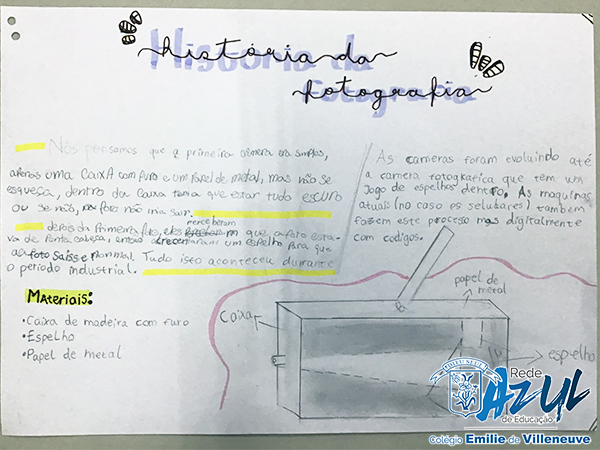 História da
fotografia
Nós pensamos que a primeira câmera era simples,
apenas uma caixa com furo e um papel de metal, mas não se
esqueça, dentro da caixa tinha que estar tudo escuro
ou se não, a foto não iria sair.
depois da primeira foto, eles perceberam que a foto esta-
va de ponta cabeça, então acrecentaram um espelho para que
a foto saisse normal. Tudo isso aconteceu durante
o período industrial.
As cameras foram evoluindo até
a camera fotografica que tem um
jogo de espelhos dentro. As maquinas
atuais (no caso os selulares) também
fazem este processo mas digitalmente
com codigos.
Materiais:
•Caixa de madeira com furo
•Espelho
•Papel de metal
papel de
metal
Caixa
espelho
Rede
AZUL
de Educação
Colégio Emilie de Villeneuve